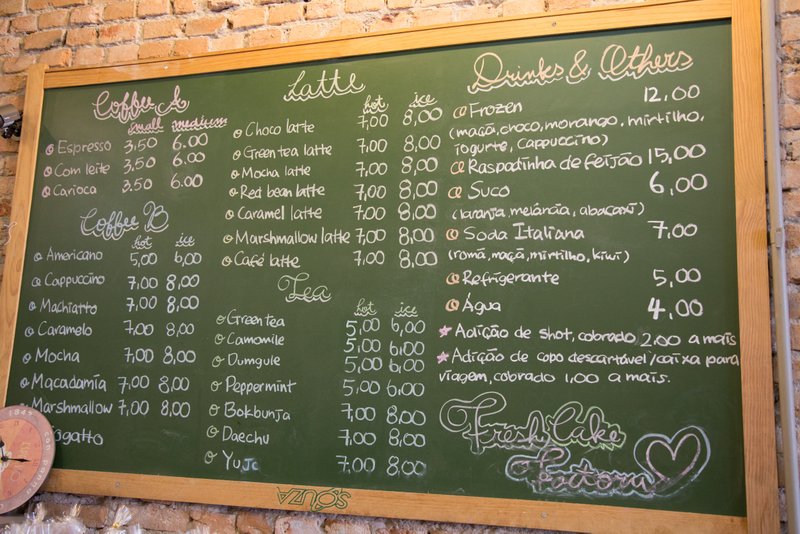 Coffee A
small medium
Espresso 3,50 6.00
Com leite 3.50 6.00
Carioca 3.50 6.00
Coffee B
hot ice
Americano 5,00 6,00
Cappuccino 7,00 8,00
Machiatto 7,00 8,00
Caramelo 7,00 8,00
Mocha 7,00 8,00
Macadamía 7,00 8,00
Marshmallow 7,00 8,00
Latte
hot ice
Choco latte 7,00 8,00
Green tea latte 7,00 8,00
Mocha latte 7,00 8,00
Red bean latte 7,00 8,00
Caramel latte 7,00 8,00
Marshmallow latte 7,00 8,00
Café latte 7,00 8,00
Tea
hot ice
Green tea 5,00 6,00
Camomile 5,00 6,00
Dumgule 5,00 6,00
Peppermint 5,00 6,00
Bokbunja 7,00 8,00
Daechu 7,00 8,00
Yuja 7,00 8,00
Drinks & Others
Frozen 12,00
(maçã, choco, morango, mirtilho,
iogurte, cappuccino)
Raspadinha de feijão 15,00
Suco 6,00
(laranja, melância, abacaxi)
Soda Italiana 7,00
(romã, maçã, mirtilho, kiwi)
Refrigerante 5,00
Água 4,00
Adição de shot, cobrado 2.00 a mais
Adição de copo descartável/caixa para
viagem, cobrado 1,00 a mais.
Fresh Cake
Factory
SOUZA
1847